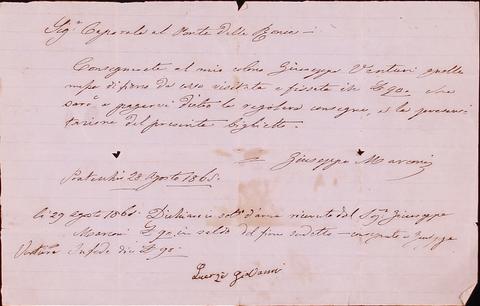 Sigr Caporale al Ponte delle
Consegnate al mio colono Giuseppe Venturi quella
di fieno da esso visitata e fissata in £ 90. che
sarò a pagarvi dietro la regolare consegna, e la presen-
tazione del presente biglietto.
Giuseppe Marconi
28 Agosto 1865.
li 29 Agosto 1865. Dichiaro io sotto aver ricevuto dal Sigr Giuseppe
Marconi £ 90. in saldo del fieno sudetto consegnato a Giuseppe
Venturi In fede dico £ 90
Giovanni